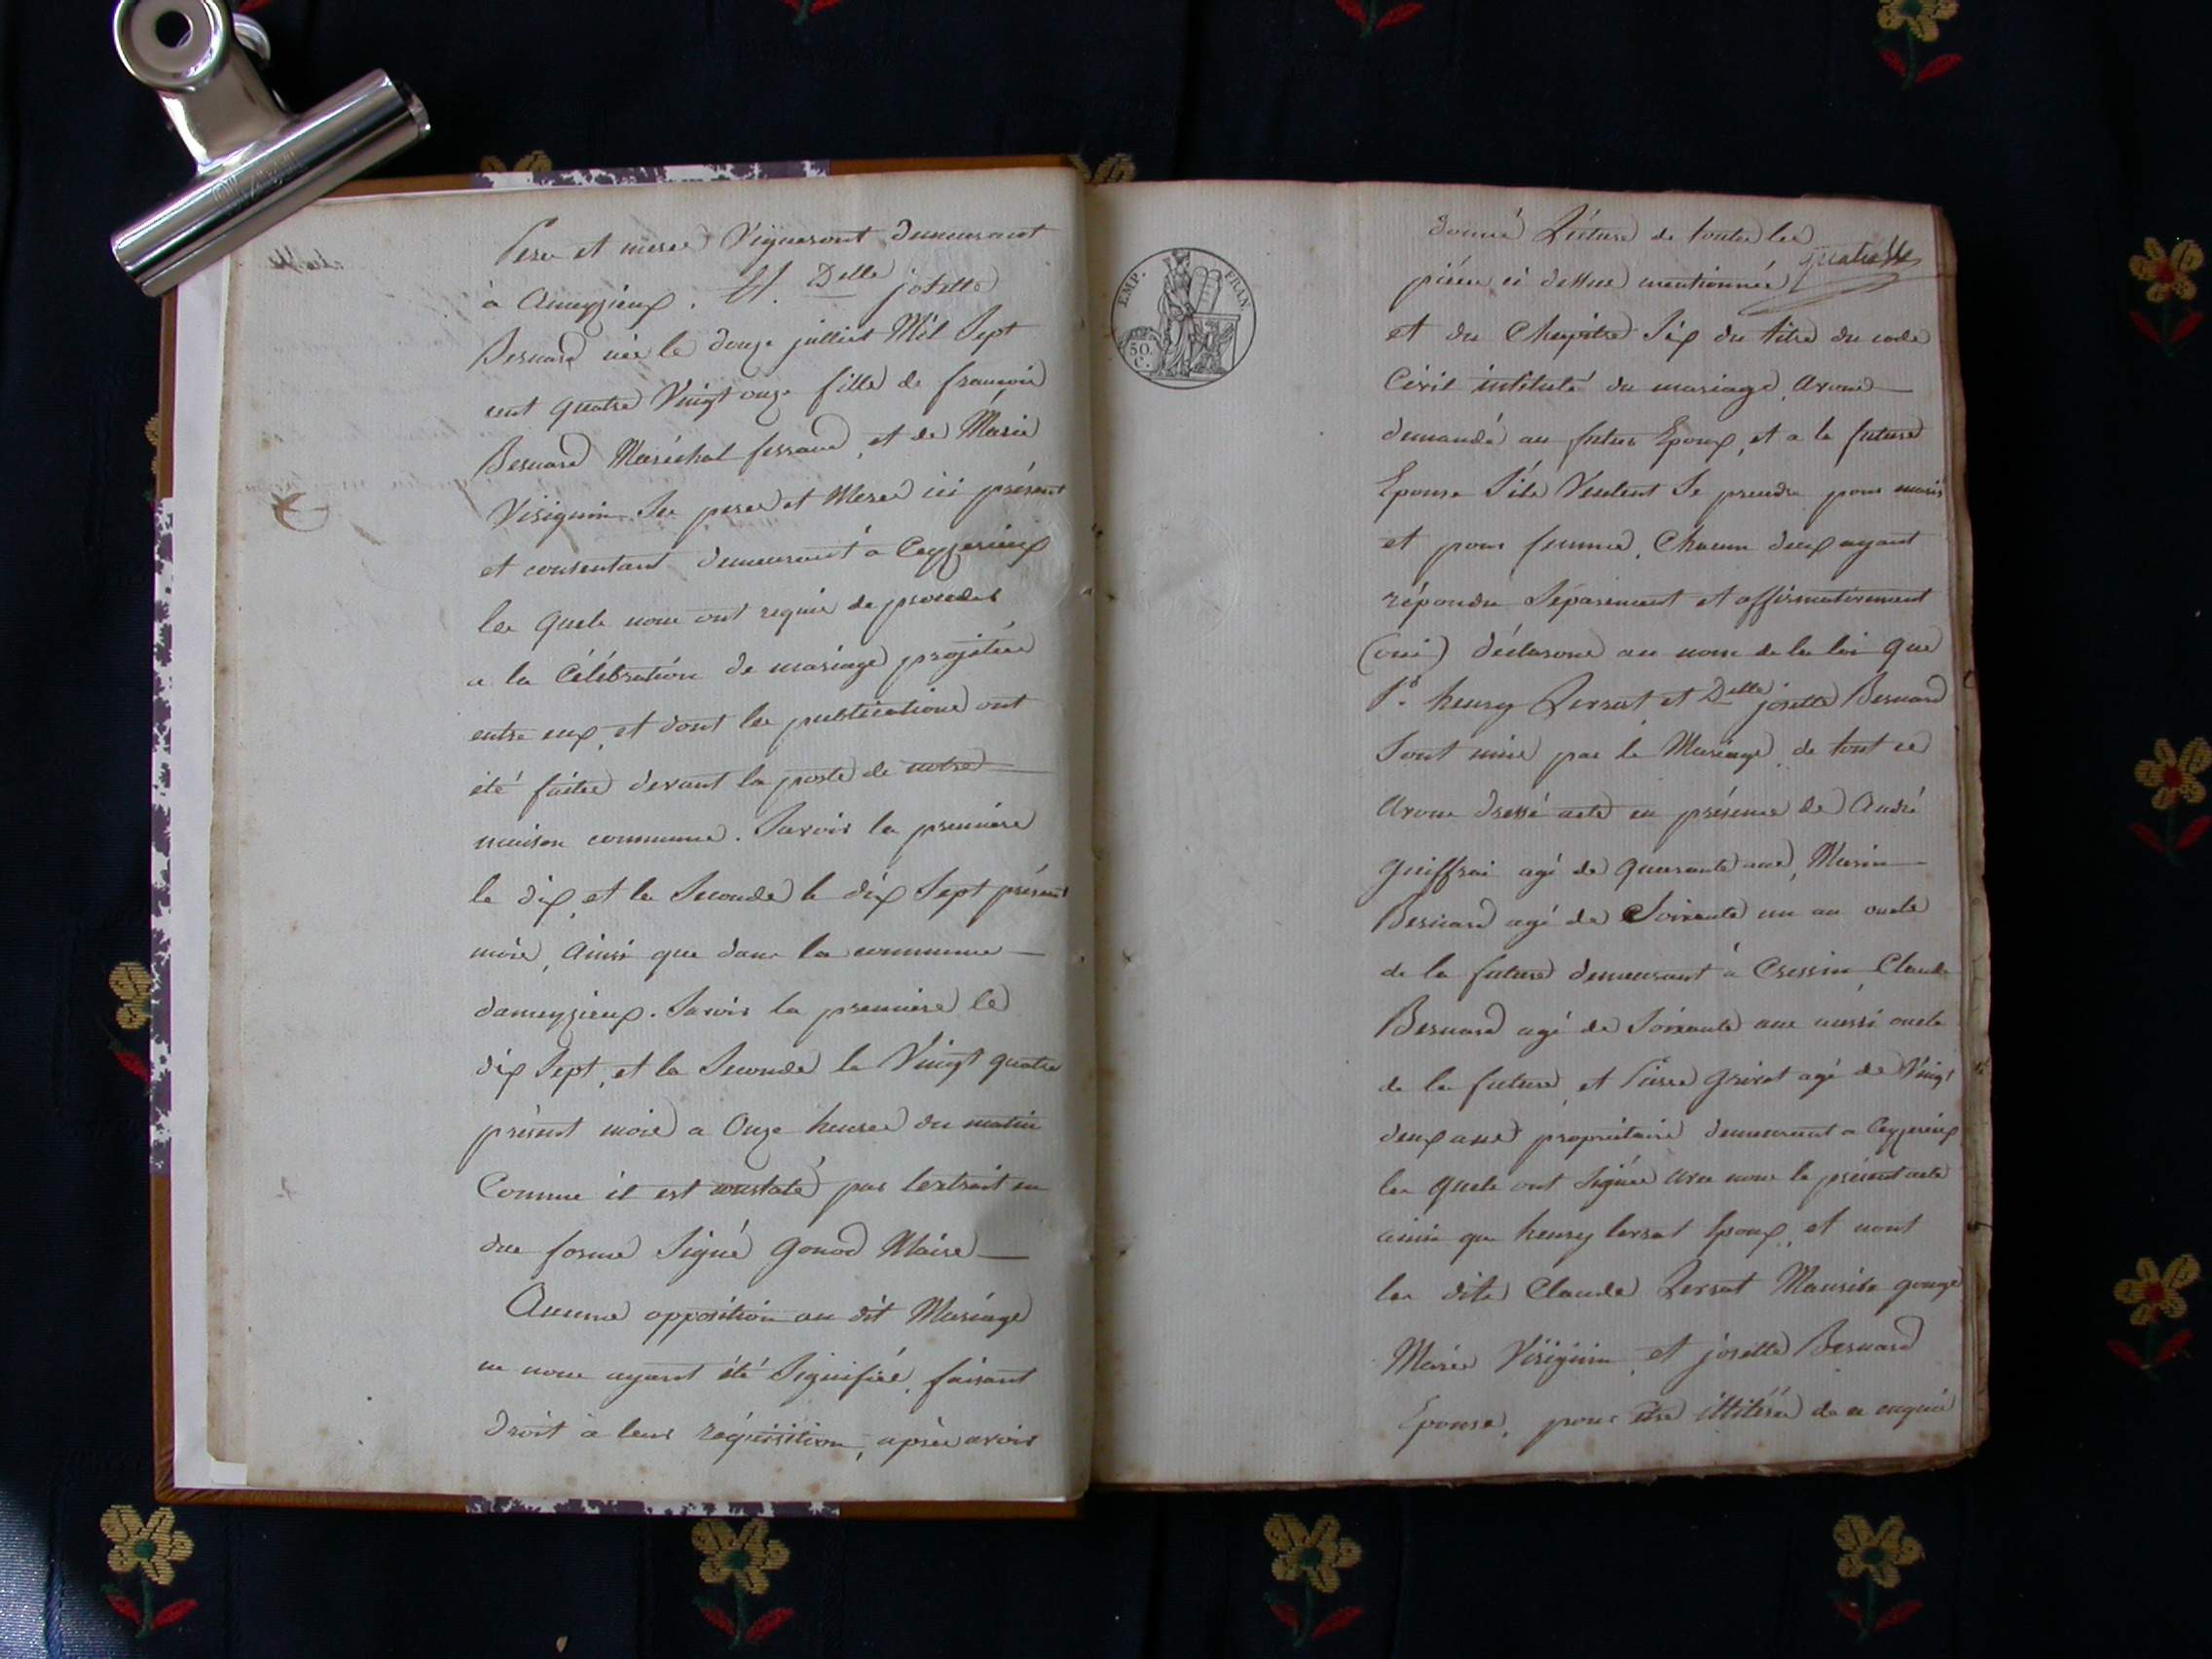 Pere et mere Vigneront demeurant
à Ameyzieux. Et. Delle josette
Bernard née le douze julliet Mil Sept
cent quatre Vingt onze fille de françois
Bernard Maréchal ferrand, et de Marie
Visignin Ses pere et Mere ici présent
et consentant demeurant à Ceyzerieux
les quels nous ont requis de proceder
a la Célébration de mariage projétée
entre eux, et dont les publications ont
été faites devant la porte de notre
maison commune. Savoir la première
le dix, et la Seconde le dix Sept présent
mois, Ainsi que dans la commune
dameyzieux. Savoir la première le
dix Sept, et la Seconde le Vingt quatre
présent mois a Onze heures du matin
Comme il est constaté par lextrait en
due forme Signé Gonod Maire
Aucune opposition au dit Mariage
ne nous ayant été Signifiée, faisant
droit à leur réquisition, après avoir
EMP. FRAN.
50.
C.
donné Lécture de toutes les
quatre
pièces ci dessus mentionnés
et du Chapitre Six du titre du code
Civil intitulé du mariage, Avons
demandé au futur Epoux, et a la future
Epouse S'ils Veulent Se prendre pour maris
et pour femme, Chacun deux ayant
répondu Séparement et affirmativement
(oui) déclarons au nom de la loi que
Sr. henry Lersat et Delle josette Bernard
Sont unis par le Mariage, de tout ce
Avons dressé acte en présence de André
Guiffrai agé de quarante ans, Marin
Bernard agé de Soixante un an oncle
de la future demeurant à Cressin, Claude
Bernard agé de Soixante ans aussi oncle
de la future, et Pierre Grivet agé de Vingt
deux ans propriétaire demeurant a Ceyzerieux
les quels ont Signés avec nous le présent acte
ainsi que henry lersat Epoux, et nont
les dits Claude Lersat Maurise gouge
Marie Visignin, et josette Bernard
Epouse, pour etre illitérés de ce enquis